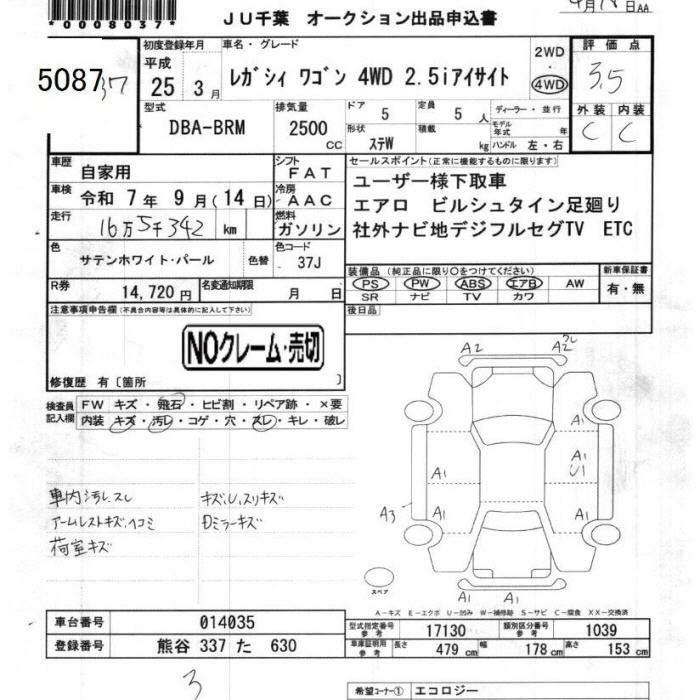 *0008037*
JU千葉 オークション出品申込書
AA
5087
初度登録年月 車名・グレード 2WD ・ 4WD 評価点
平成 25 3月 レガシィ ワゴン 4WD 2.5iアイサイト 3.5
外装 内装
C C
型式 DBA-BRM 排気量 2500 CC ドア 5 定員 5 人 ディーラー・並行
形状 ステW 積載 kg モデル年式 年 ハンドル 左・右
車歴 自家用 シフト FAT セールスポイント(正常に機能するものに限ります)
車検 令和 7年 9月(14日) 冷房 AAC ユーザー様下取車
走行 16万5千342 km 燃料 ガソリン エアロ ビルシュタイン足廻り
社外ナビ地デジフルセグTV ETC
色 サテンホワイト・パール 色替 色コード 37J
装備品(純正品に限り○をつけてください) 新車保証書
PS PW ABS エアB AW 有・無
SR ナビ TV カワ
R券 14,720円 名変通知期限 月 日
注意事項申告欄(不具合内容等は具体的に記入して下さい) 後日品
NOクレーム・売切
修復歴 有〔箇所 〕
検査員記入欄 FW キズ・飛石・ヒビ割・リペア跡・×要
内装 キズ・汚レ・コゲ・穴・スレ・キレ・破レ
A2 A2
A1
A1 A1 U1
A3 A1 A1
A1 A1
車内汚レ、スレ キズ、U、スリキズ
アームレストキズ、ヘコミ Dミラーキズ
荷室キズ
スペア
A-キズ E-エクボ U-凹み W-補修跡 S-サビ C-腐食 XX-交換済
車台番号 014035 型式指定番号 参考 17130 類別区分番号 参考 1039
登録番号 熊谷 337 た 630 車庫証明用 参考 長さ 479 cm 幅 178 cm 高さ 153 cm
3
希望コーナー① エコロジー